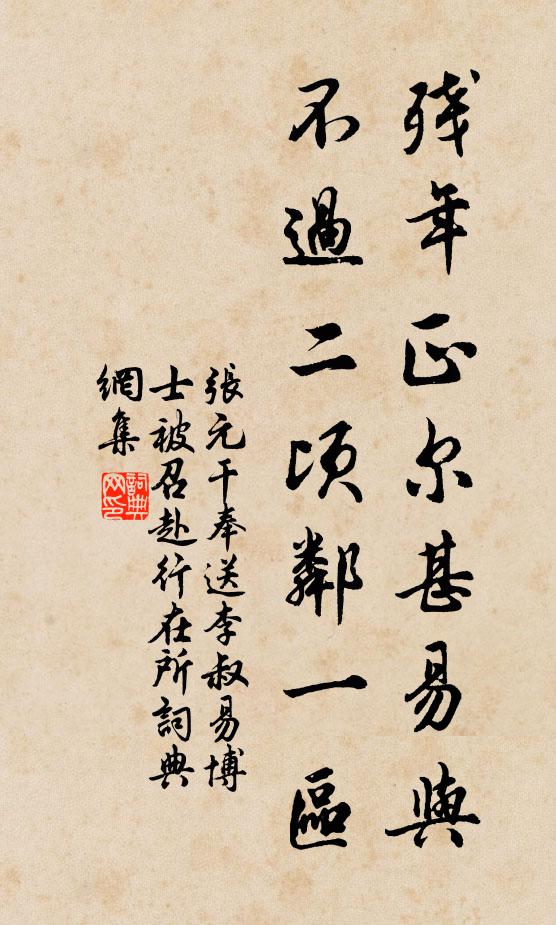 残年正尔甚易與
不過二頃鄰一區
張元干奉送李叔易博
士被召赴行在所詞典
網集
詞典
网印